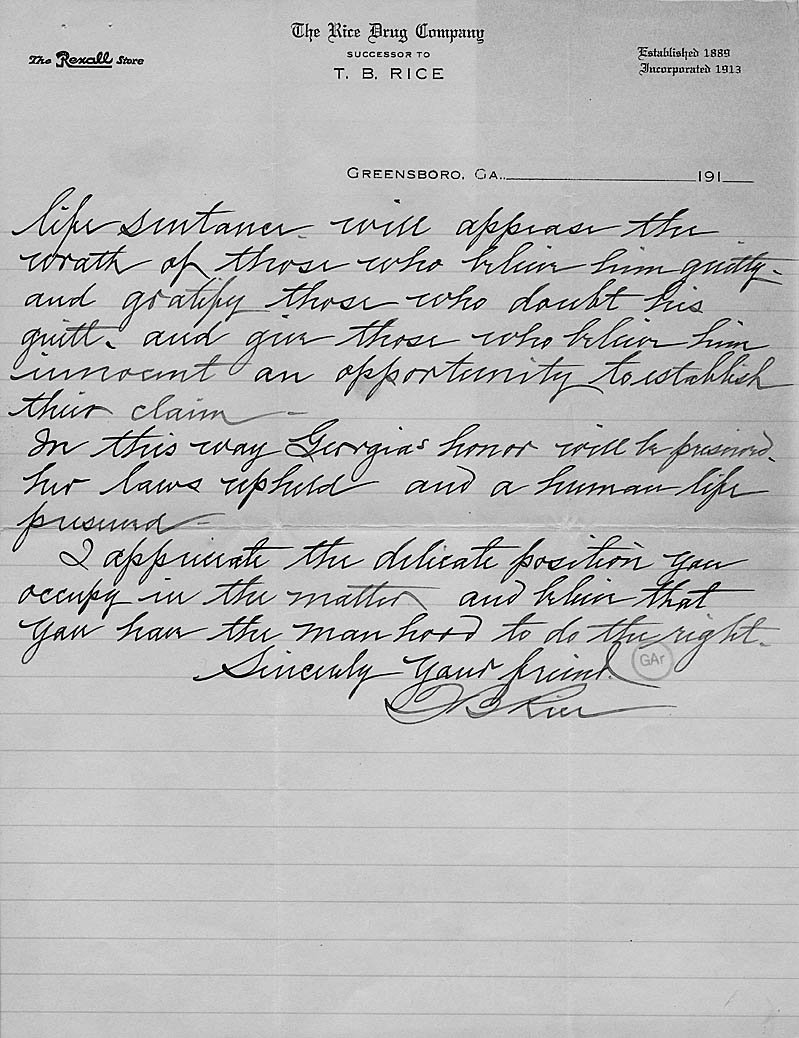 The Rice Drug Company
SUCCESSOR TO
T. B. RICE
The Rexall Store
Established 1889
Incorporated 1913
GREENSBORO, GA. 191
life sentance will appease the
wrath of those who believe him guilty-
and gratify those who doubt his
guilt- and give those who believe him
innocent an opportunity to establish
their claim-
In this way Georgia's honor will be preserved-
her laws upheld and a human life
preserved-
I appreciate the delicate position you
occupy in the matter and believe that
you have the manhood to do the right-
Sincerely your friend
GAr
T B Rice